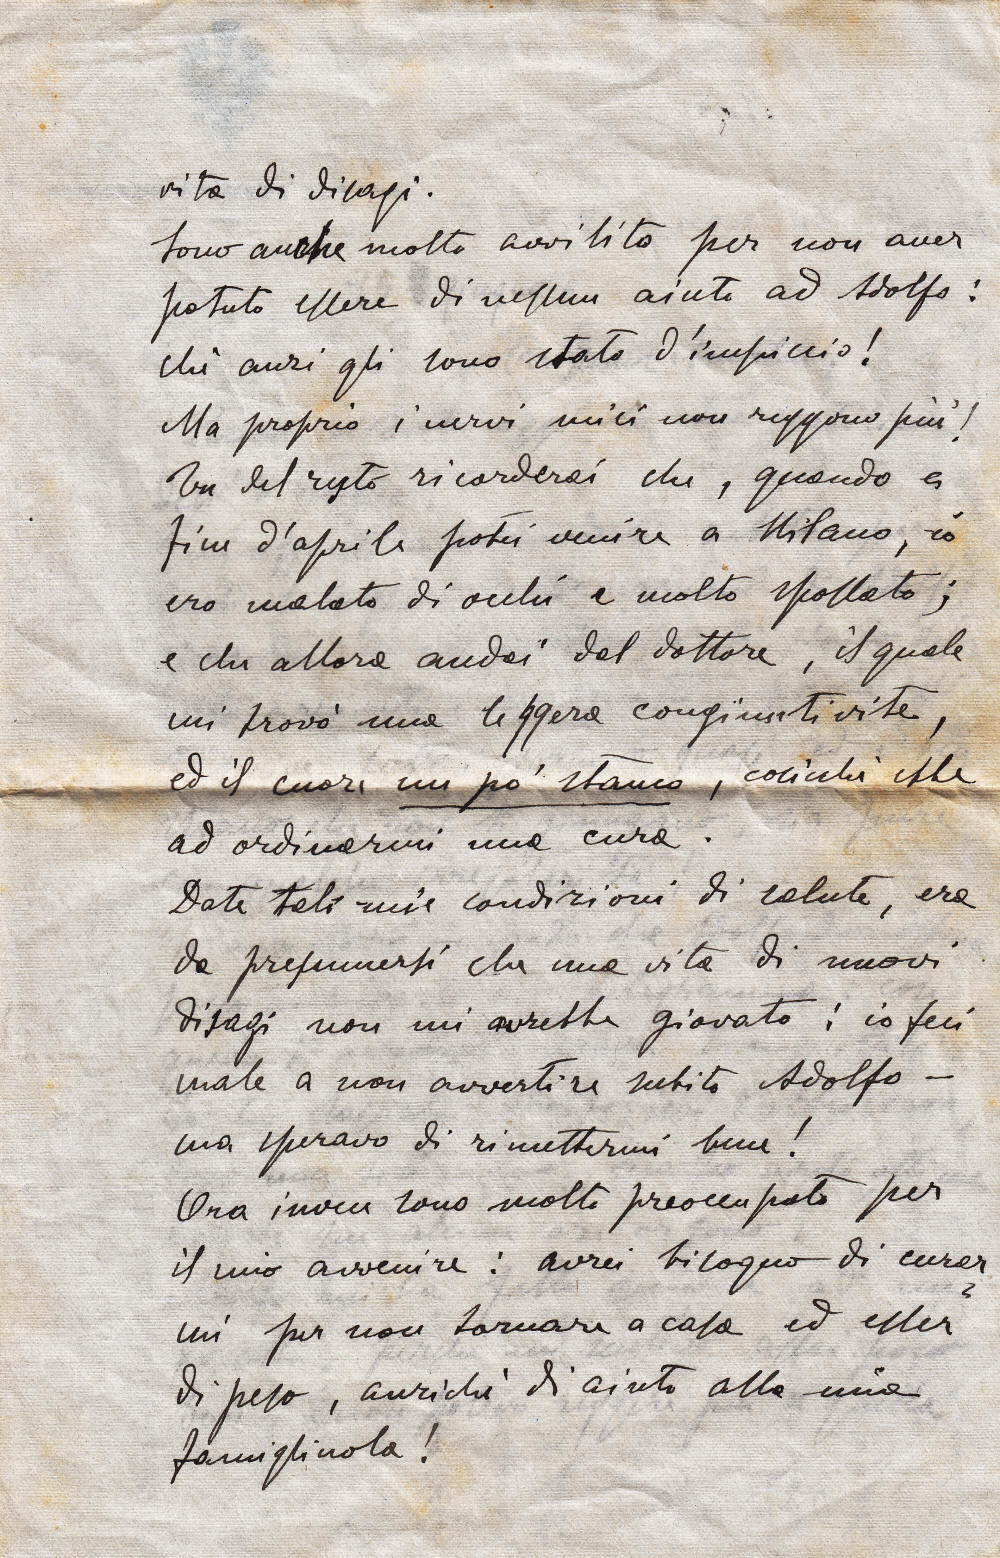 vita di disagi.
Sono anche molto avvilito per non aver
potuto essere di nessun aiuto ad Adolfo:
chè anzi gli sono stato d'impiccio!
Ma proprio i nervi miei non reggono più!
Tu del resto ricorderai che, quando a
fine d'aprile potei venire a Milano, io
ero malato di occhi e molto spossato;
e che allora andai dal dottore, il quale
mi trovò una leggera congiuntivite,
ed il cuore un po' stanco, cosicchè ebbe
ad ordinarmi una cura.
Date tali mie condizioni di salute, era
da presumersi che una vita di nuovi
disagi non mi avrebbe giovato: io feci
male a non avvertire subito Adolfo –
ma speravo di rimettermi bene!
Ora invece sono molto preoccupato per
il mio avvenire: avrei bisogno di curar
mi per non tornare a casa ed esser
di peso, anzichè di aiuto alla mia
famigliuola!